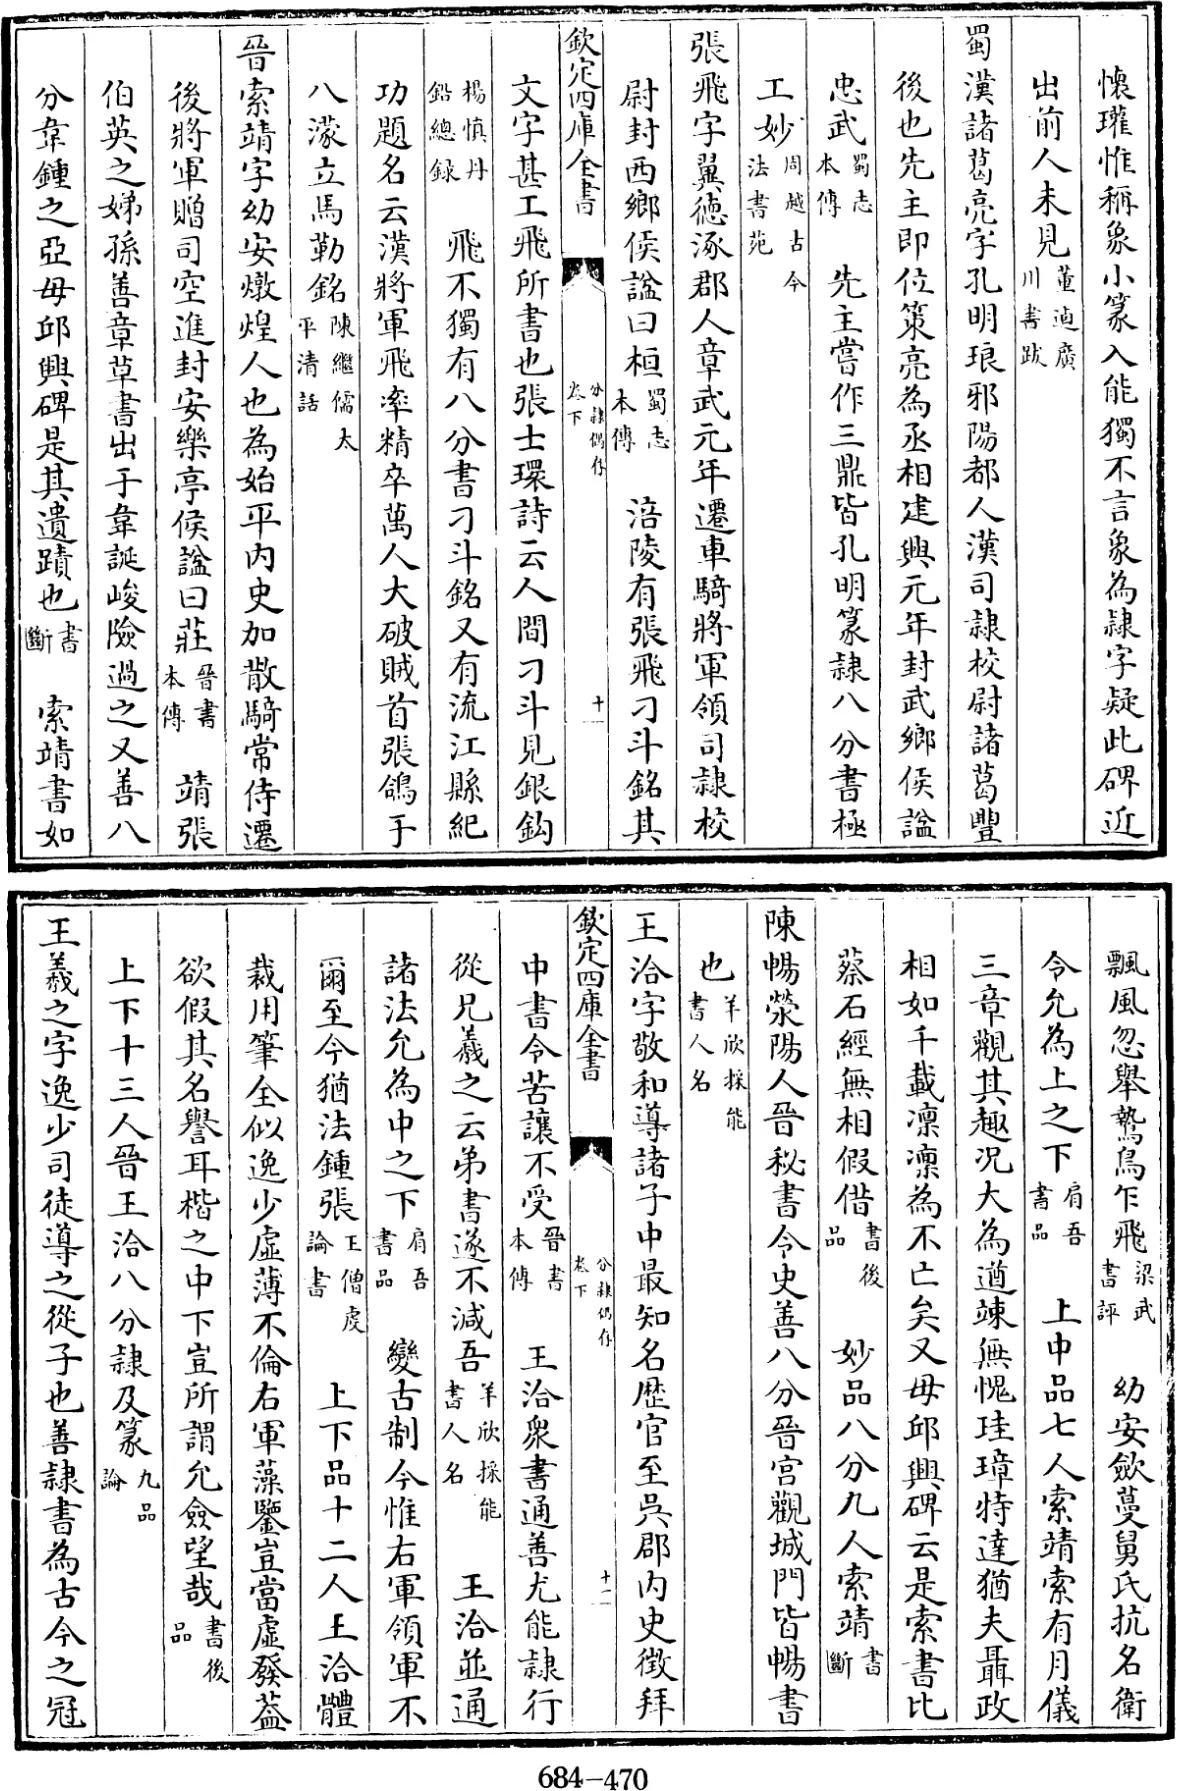 懷瓘惟稱象小篆入能獨不言象為隷字疑此碑近
出前人未見董逌廣川書跋
蜀漢諸葛亮字孔明琅邪陽都人漢司隷校尉諸葛豐
後也先主即位策亮為丞相建興元年封武鄉侯諡
忠武蜀志本傳 先主嘗作三鼎皆孔明篆隷八分書極
工妙周越古今法書苑
張飛字翼德涿郡人章武元年遷車騎將軍領司隷校
尉封西鄉侯諡曰桓蜀志本傳 涪陵有張飛刁斗銘其
欽定四庫全書 分隷偶存卷下 十一
文字甚工飛所書也張士環詩云人間刁斗見銀鈎
楊慎丹鉛總録 飛不獨有八分書刁斗銘又有流江縣紀
功題名云漢將軍飛率精卒萬人大破賊首張郃于
八濛立馬勒銘陳繼儒太平清話
晉索靖字幼安燉煌人也為始平内史加散騎常侍遷
後將軍贈司空進封安樂亭侯諡曰莊晉書本傳 靖張
伯英之娣孫善章草書出于韋誕峻險過之又善八
分韋鍾之亞毋邱興碑是其遺蹟也書斷 索靖書如
飄風忽舉鷙鳥乍飛梁武書評 幼安歛蔓舅氏抗名衛
令允為上之下肩吾書品 上中品七人索靖索有月儀
三章觀其趣况大為遒竦無愧珪璋特達猶夫聶政
相如千載凛凛為不亡矣又毋邱興碑云是索書比
蔡石經無相假借書後品 妙品八分九人索靖書斷
陳暢滎陽人晉秘書令史善八分晉宫觀城門皆暢書
也羊欣採能書人名
王洽字敬和導諸子中最知名歴官至吳郡内史徵拜
欽定四庫全書 分隷偶存卷下 十二
中書令苦讓不受晉書本傳 王洽衆書通善尤能隷行
從兄羲之云弟書遂不減吾羊欣採能書人名 王洽並通
諸法允為中之下肩吾書品 變古制今惟右軍領軍不
爾至今猶法鍾張王僧虔論書 上下品十二人王洽體
裁用筆全似逸少虛薄不倫右軍藻鑒豈當虛發葢
欲假其名譽耳楷之中下豈所謂允僉望哉書後品
上下十三人晉王洽八分隷及篆九品論
王羲之字逸少司徒導之從子也善隷書為古今之冠
684-470